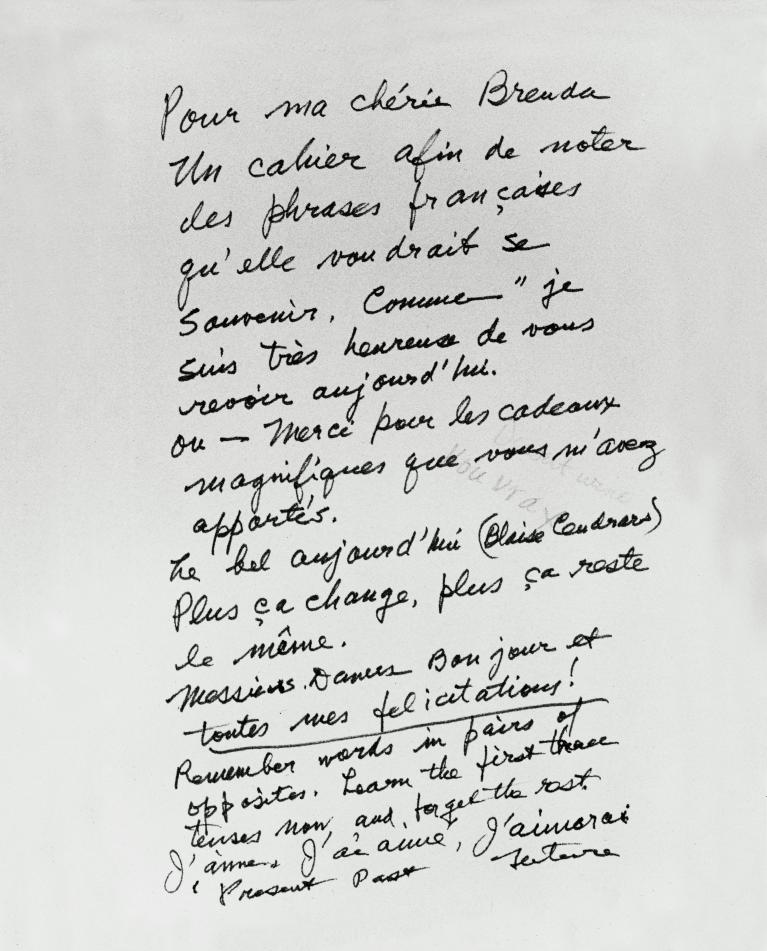 Pour ma chérie Brenda
Un cahier afin de noter
des phrases françaises
qu'elle voudrait se
souvenir. Comme " je
suis très heureuse de vous
revoir aujourd'hui.
ou — Merci pour les cadeaux
magnifiques que vous m'avez
apportés.
Le bel aujourd'hui (Blaise Cendrars)
Plus ça change, plus ça reste
le même.
Messieurs. Dames Bon jour et
toutes mes felicitations!
Remember words in pairs of
opposites. Learn the first three
tenses now, and forget the rest.
J'aime. J'ai aimé, J'aimerai
Present Past future